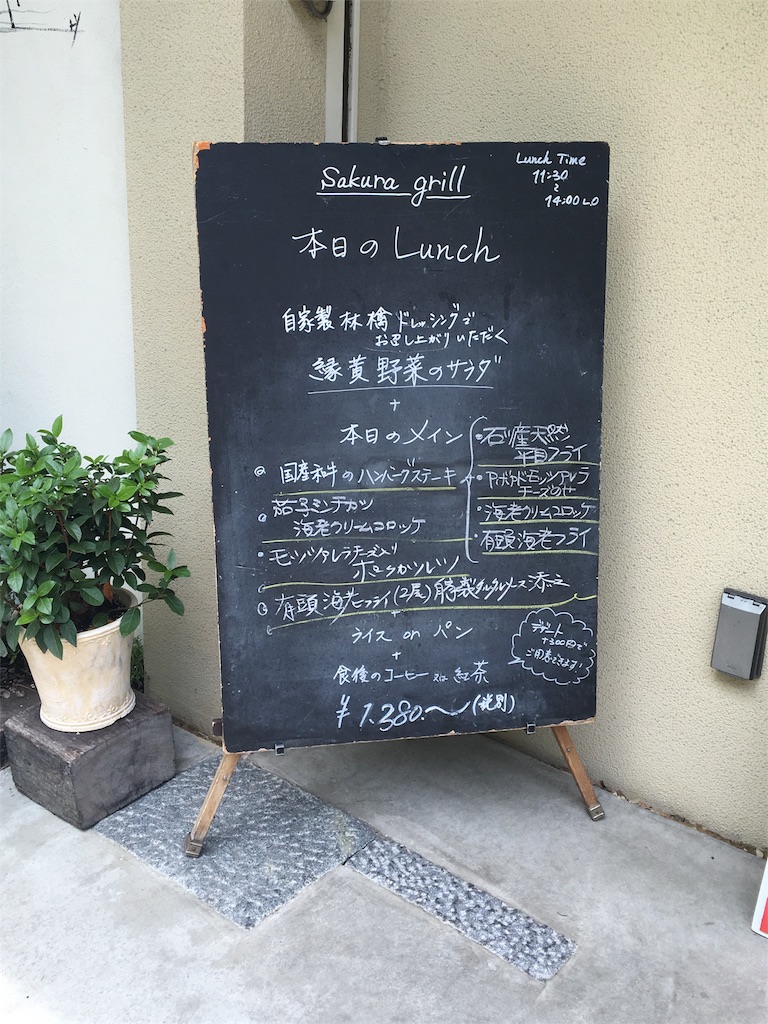 Sakura grill
Lunch Time
11:30
~
14:00 L.O
本日のLunch
自家製林檎ドレッシングで
お召し上がりいただく
緑黄野菜のサラダ
+
本日のメイン
国産和牛のハンバーグステーキ
茄子ミンチカツ
海老クリームコロッケ
モッツァレラチーズ入り
ポークカツレツ
有頭海老フライ(2尾)特製タルタルソース添え
天然
平目フライ
アボカドモッツァレラ
チーズのせ
海老クリームコロッケ
有頭海老フライ
+
ライス or パン
+
食後のコーヒー又は紅茶
¥1.380.〜(税別)
デザート
+300円で
ご用意できます!